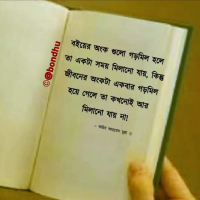 বইয়ের অংক গুলো গড়মিল হলে
তা একটা সময় মিলানো যায়, কিন্তু
জীবনের অংকটা একবার গড়মিল
হযে গেলে তা কখনোই আর
মিলানো যায় না!
@bondhu